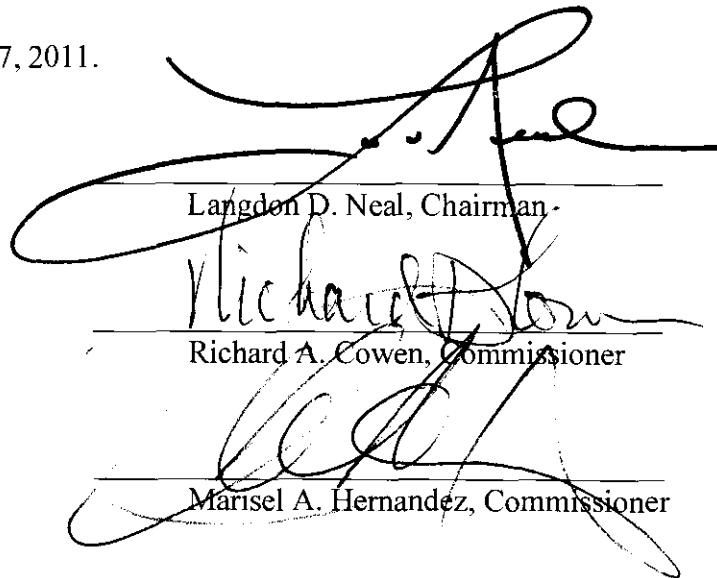 7, 2011.
Neal
Langdon D. Neal, Chairman
Richard A. Cowen
Richard A. Cowen, Commissioner
Marisel A. Hernandez, Commissioner